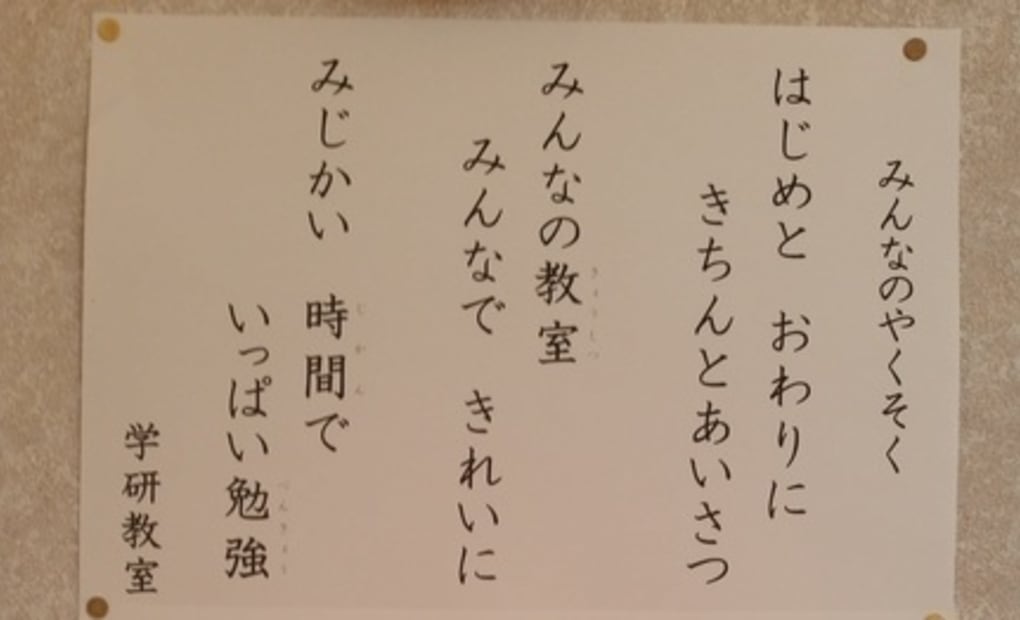 みんなのやくそく
はじめと　おわりに
きちんとあいさつ
みんなの教室
みんなで　きれいに
みじかい　時間で
いっぱい勉強
学研教室